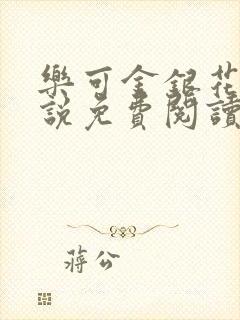 樂可金銀花
說免費閱讀
蔣公